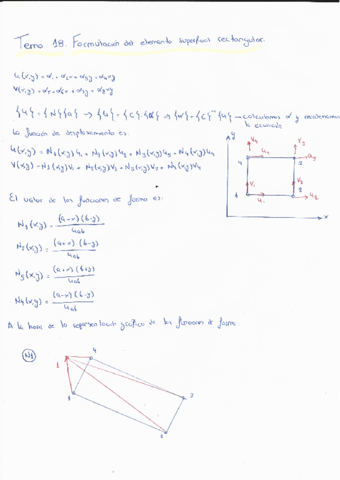 Tema 18. Formutación del elemento superficial rectangular.
u(x,y) = α₁ + α₂x + α₃y + α₄xy
V(x,y) = α₅ + α₆x + α₇y + α₈xy
{u} = {N}{a} → {u} = {C}{α} → {α} = {C}⁻¹{u} → calculamos α y reordenamos
la ecuación
La función de desplazamiento es:
u(x,y) = N₁(x,y)u₁ + N₂(x,y)u₂ + N₃(x,y)u₃ + N₄(x,y)u₄
V(x,y) = N₁(x,y)V₁ + N₂(x,y)V₂ + N₃(x,y)V₃ + N₄(x,y)V₄
y
V₄
V₃
4
u₄
3
u₃
V₁
V₂
1
u₁
2
u₂
x
El valor de las funciones de forma es:
N₁(x,y) = (a-x)(b-y) / 4ab
N₂(x,y) = (a+x)(b-y) / 4ab
N₃(x,y) = (a+x)(b+y) / 4ab
N₄(x,y) = (a-x)(b+y) / 4ab
A la hora de la representación gráfica de las funciones de forma
N1
1
4
1
3
2